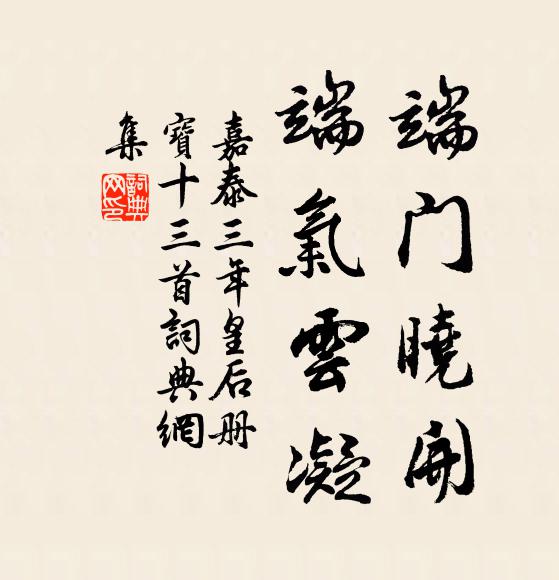 端門曉開
端氣雲凝
嘉泰三年皇后册
寶十三首詞典網
集
詞典
网印